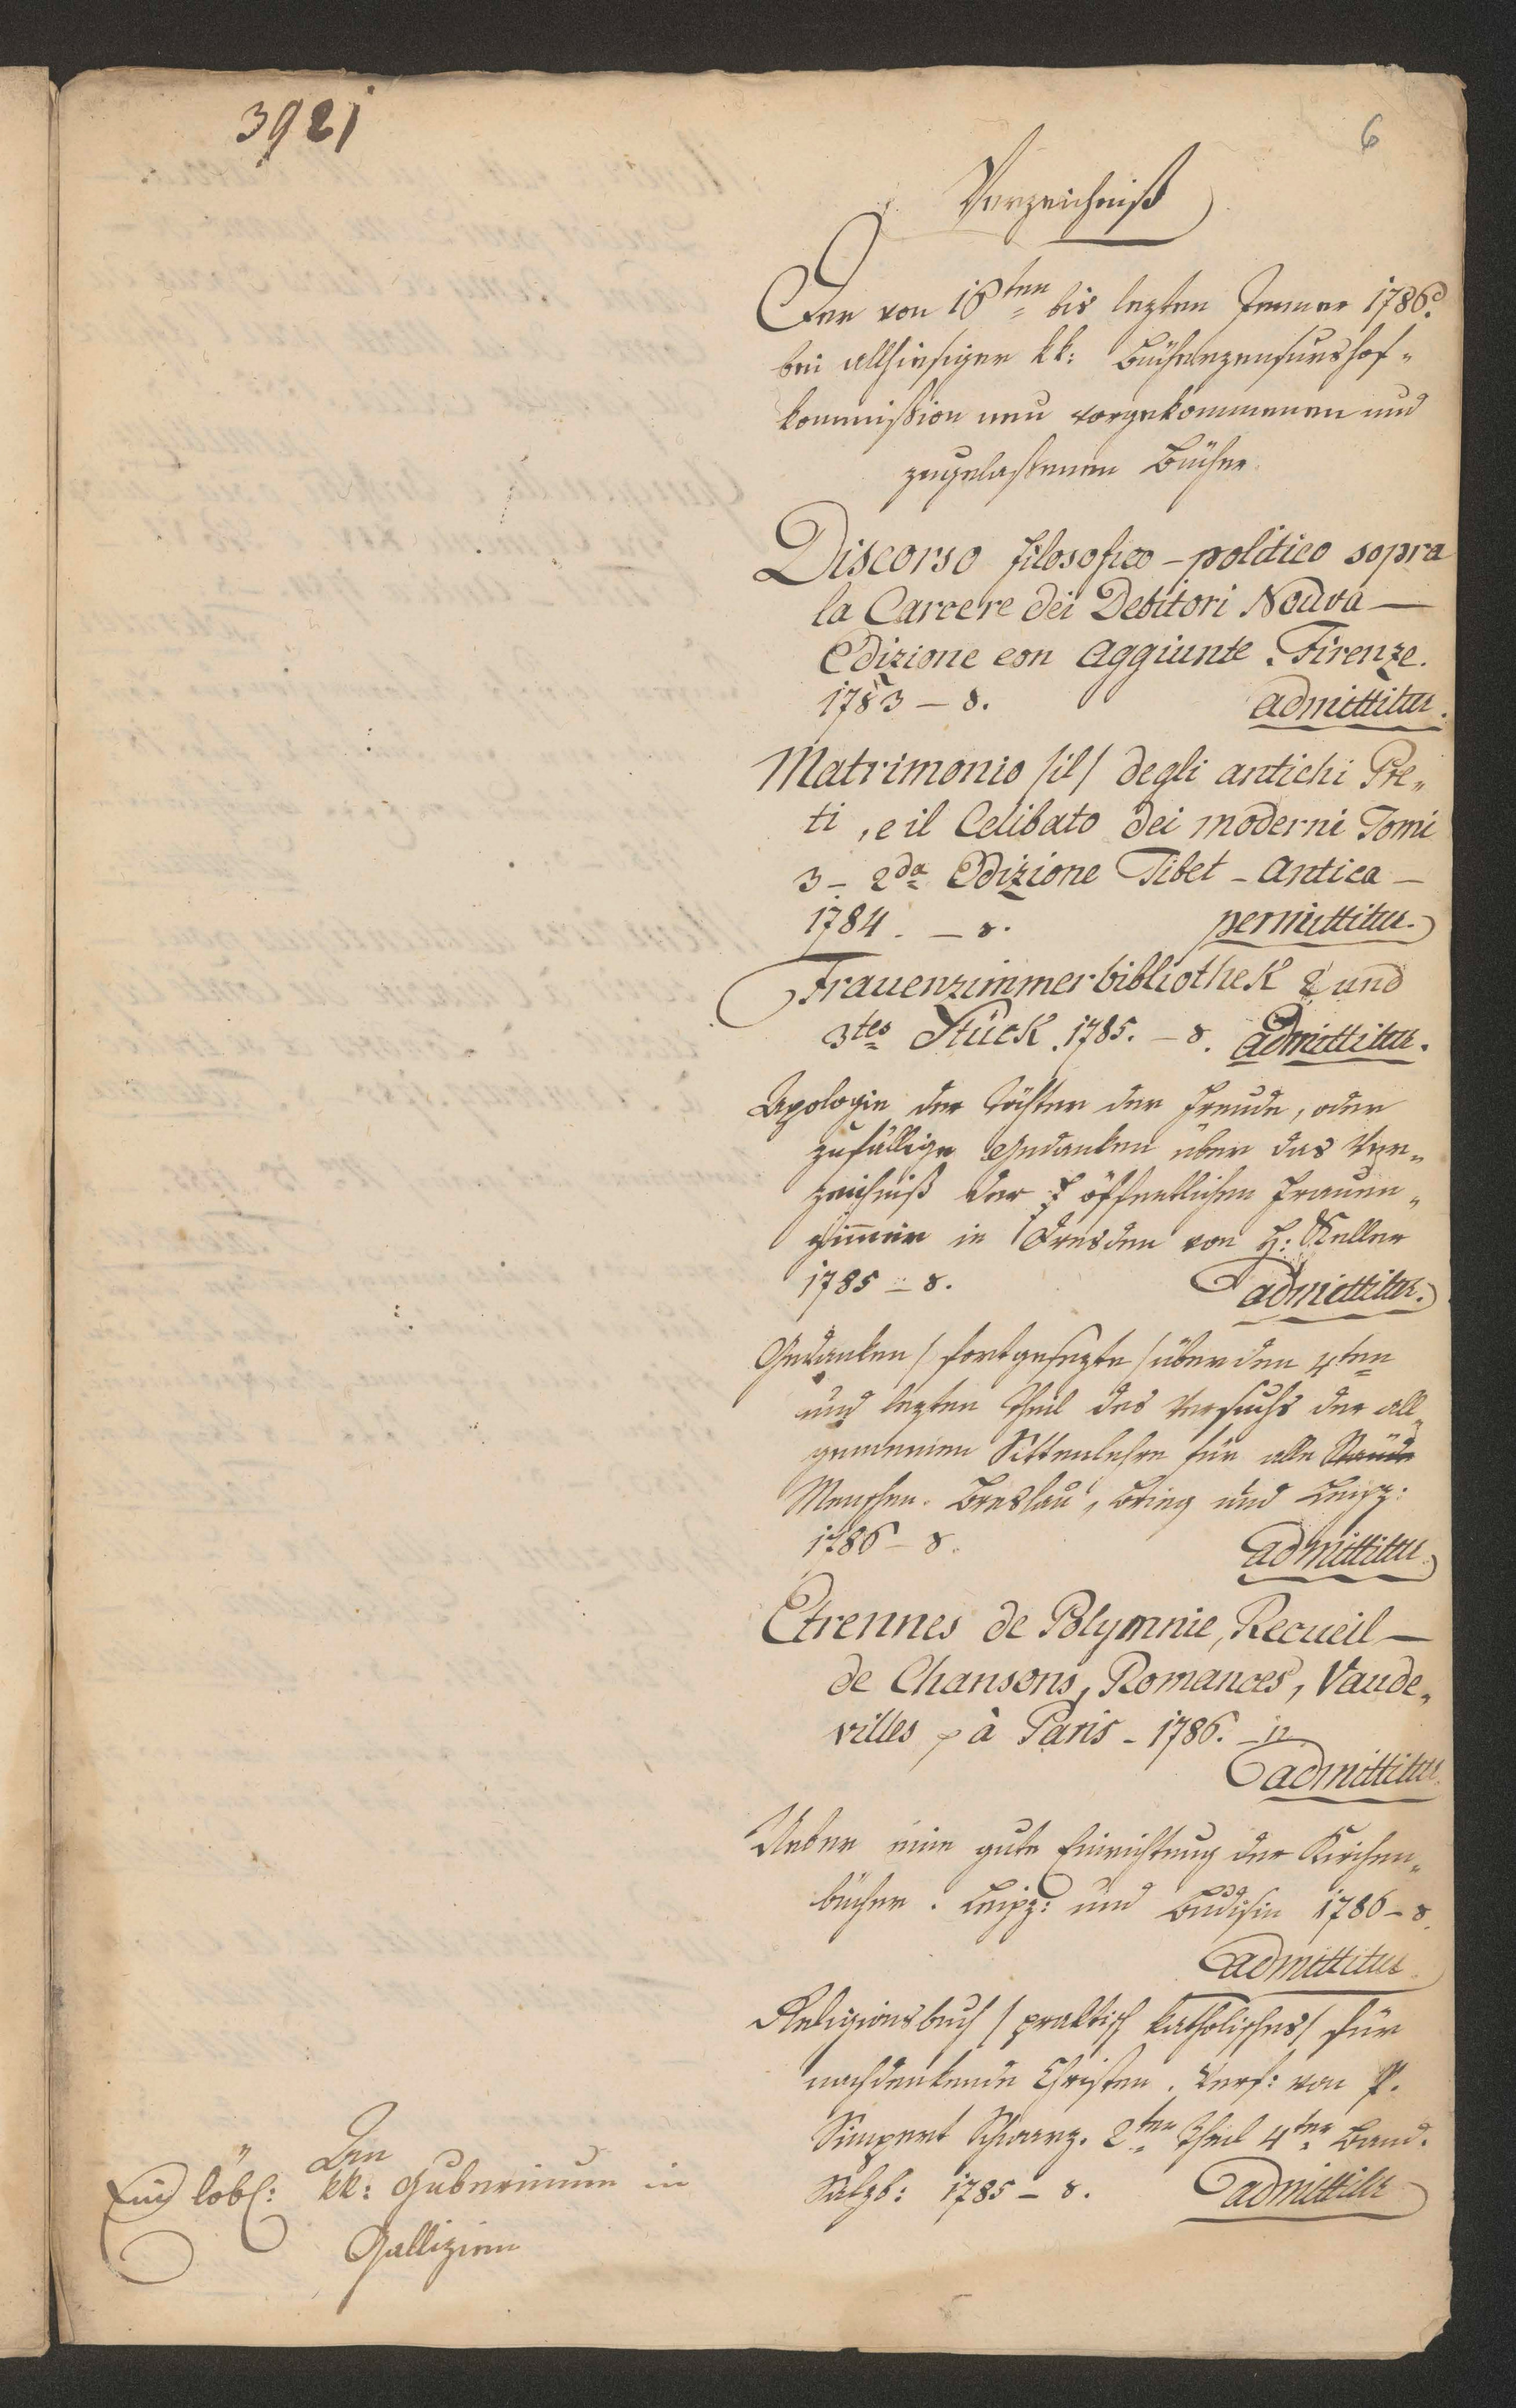 3921
6
Verzeichniß
Der von 16ten bis lezten Jenner 1786.
bei allhiesiger kk: Bücherzensurshof„
kommißion neu vorgekommenen und
zugelaßenen Bücher.
Discorso filosofico - politico sopra
la Carcere dei Debitori Nouva —
Edizione con Aggiunte. Firenze.
1783 — 8. admittitur.
Matrimonio /il/ degli antichi Pre„
ti, e il Celibato dei moderni Tomi
3 — 2da Edizione Tibet - Antica —
1784. — 8. permittitur.
Frauenzimmerbibliothek 2 und
3tes Stück. 1785. — 8. admittitur.
Apologie der Töchter der Freude, oder
zufällige Gedanken über das Ver„
zeichniß der öffentlichen Frauen„
zimmer in Dresden von H: Keller
1785 — 8. admittitur.
Gedanken /fortgesezte/ über den 4ten
und lezten Theil des Versuchs der all„
gemeinen Sittenlehre für alle Stände
Menschen. Breslau, Brieg und Leipz:
1786 — 8. admittitur.
Etrennes de Polymnie, Recueil —
de Chansons, Romances, Vaude„
villes à Paris - 1786. — 12
admittitur.
Ueber eine gute Einrichtung der Kirchen„
bücher. Leipz: und Budisin 1786 — 8.
admittitur.
Religionsbuch /praktisch katholisches/ für
nachdenkende Christen. Verf: von P.
Simpert Schwarz. 2ter Theil 4ter Band.
Salzb: 1785 — 8. admittitr
An
Ein löbl: kk: Gubernium in
Gallizien